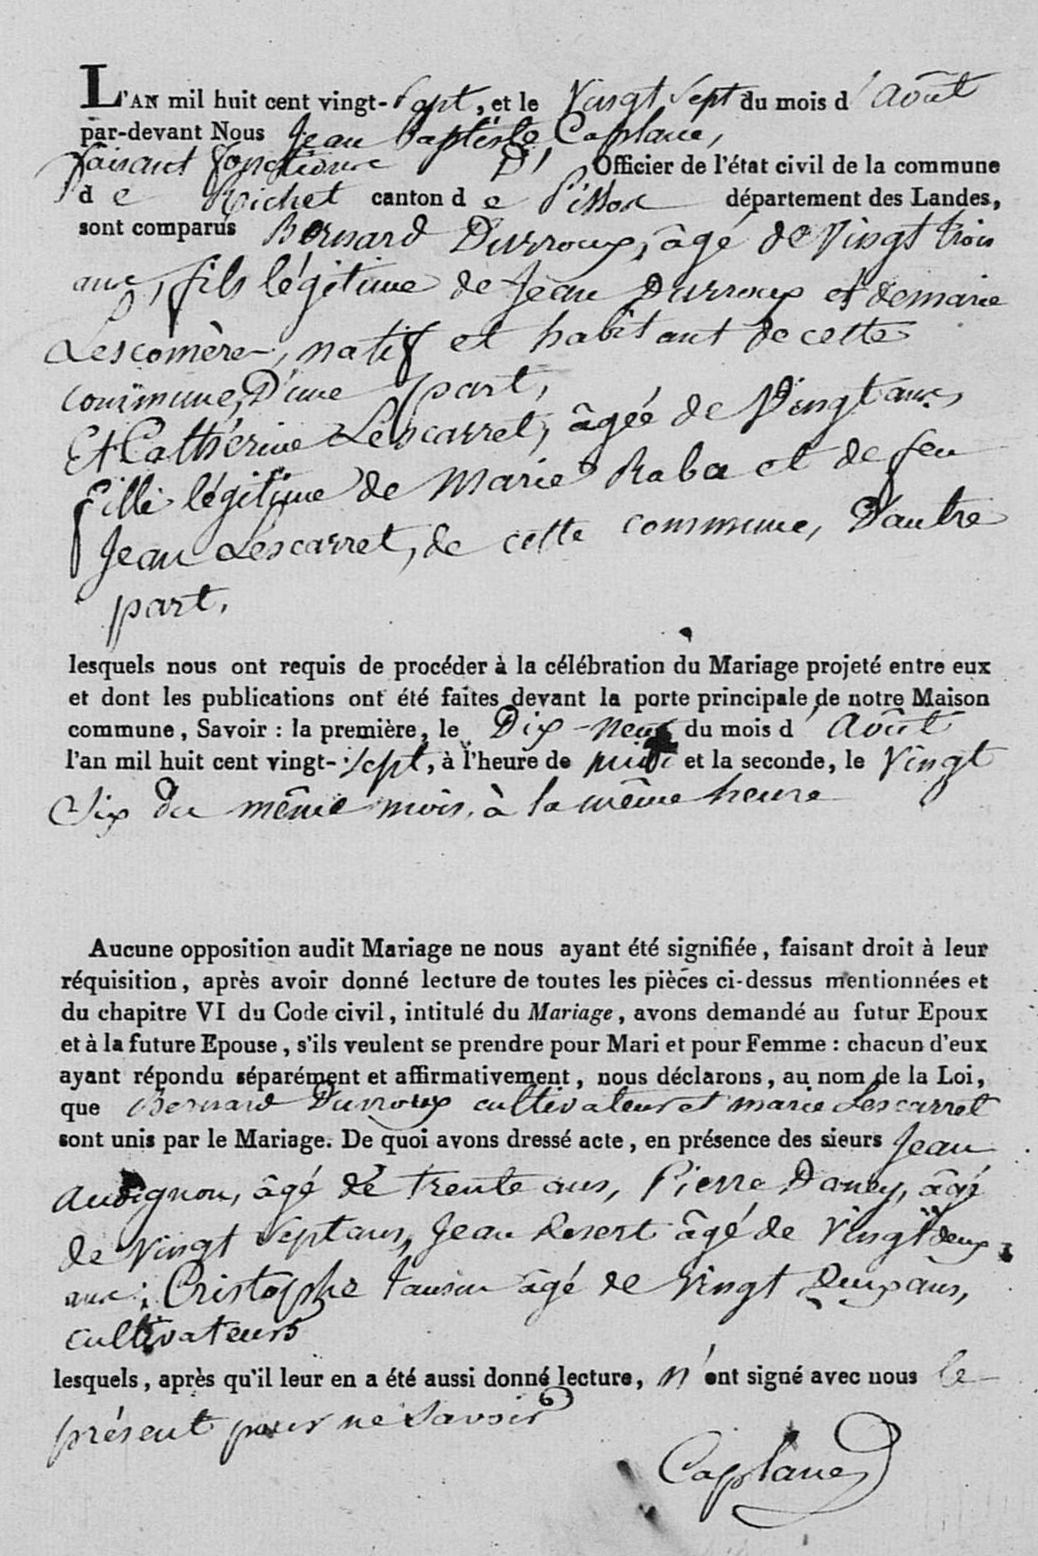 L'AN mil huit cent vingt-sept, et le Vingt sept du mois d'août
par-devant Nous Jean Baptiste Caplane,
faisant fonctions D' Officier de l'état civil de la commune
de Richet canton de Pissos département des Landes,
sont comparus Bernard Durroux, âgé de Vingt trois
ans, fils légitime de Jean Durroux et de marie
Lescomère, natif et habitant de cette
commune, D'une part,
Et Cathérine Lescarret, âgée de Vingt ans,
fille légitime de Marie Raba et de feu
Jean Lescarret, de cette commune, D'autre
part.
lesquels nous ont requis de procéder à la célébration du Mariage projeté entre eux
et dont les publications ont été faites devant la porte principale de notre Maison
commune, Savoir : la première, le Dix-neuf du mois d'Août
l'an mil huit cent vingt-sept, à l'heure de midi et la seconde, le Vingt
Six du même mois, à la même heure
Aucune opposition audit Mariage ne nous ayant été signifiée, faisant droit à leur
réquisition, après avoir donné lecture de toutes les pièces ci-dessus mentionnées et
du chapitre VI du Code civil, intitulé du Mariage, avons demandé au futur Epoux
et à la future Epouse, s'ils veulent se prendre pour Mari et pour Femme : chacun d'eux
ayant répondu séparément et affirmativement, nous déclarons, au nom de la Loi,
que Bernard Durroux cultivateur et marie Lescarret
sont unis par le Mariage. De quoi avons dressé acte, en présence des sieurs Jean
Audignon, âgé de trente ans, Pierre Daney, âgé
de Vingt Sept ans, Jean âgé de Vingt deux
ans; Cristophe âgé de Vingt Deux ans,
cultivateurs
lesquels, après qu'il leur en a été aussi donné lecture, n'ont signé avec nous le
présent pour ne Savoir
Caplane